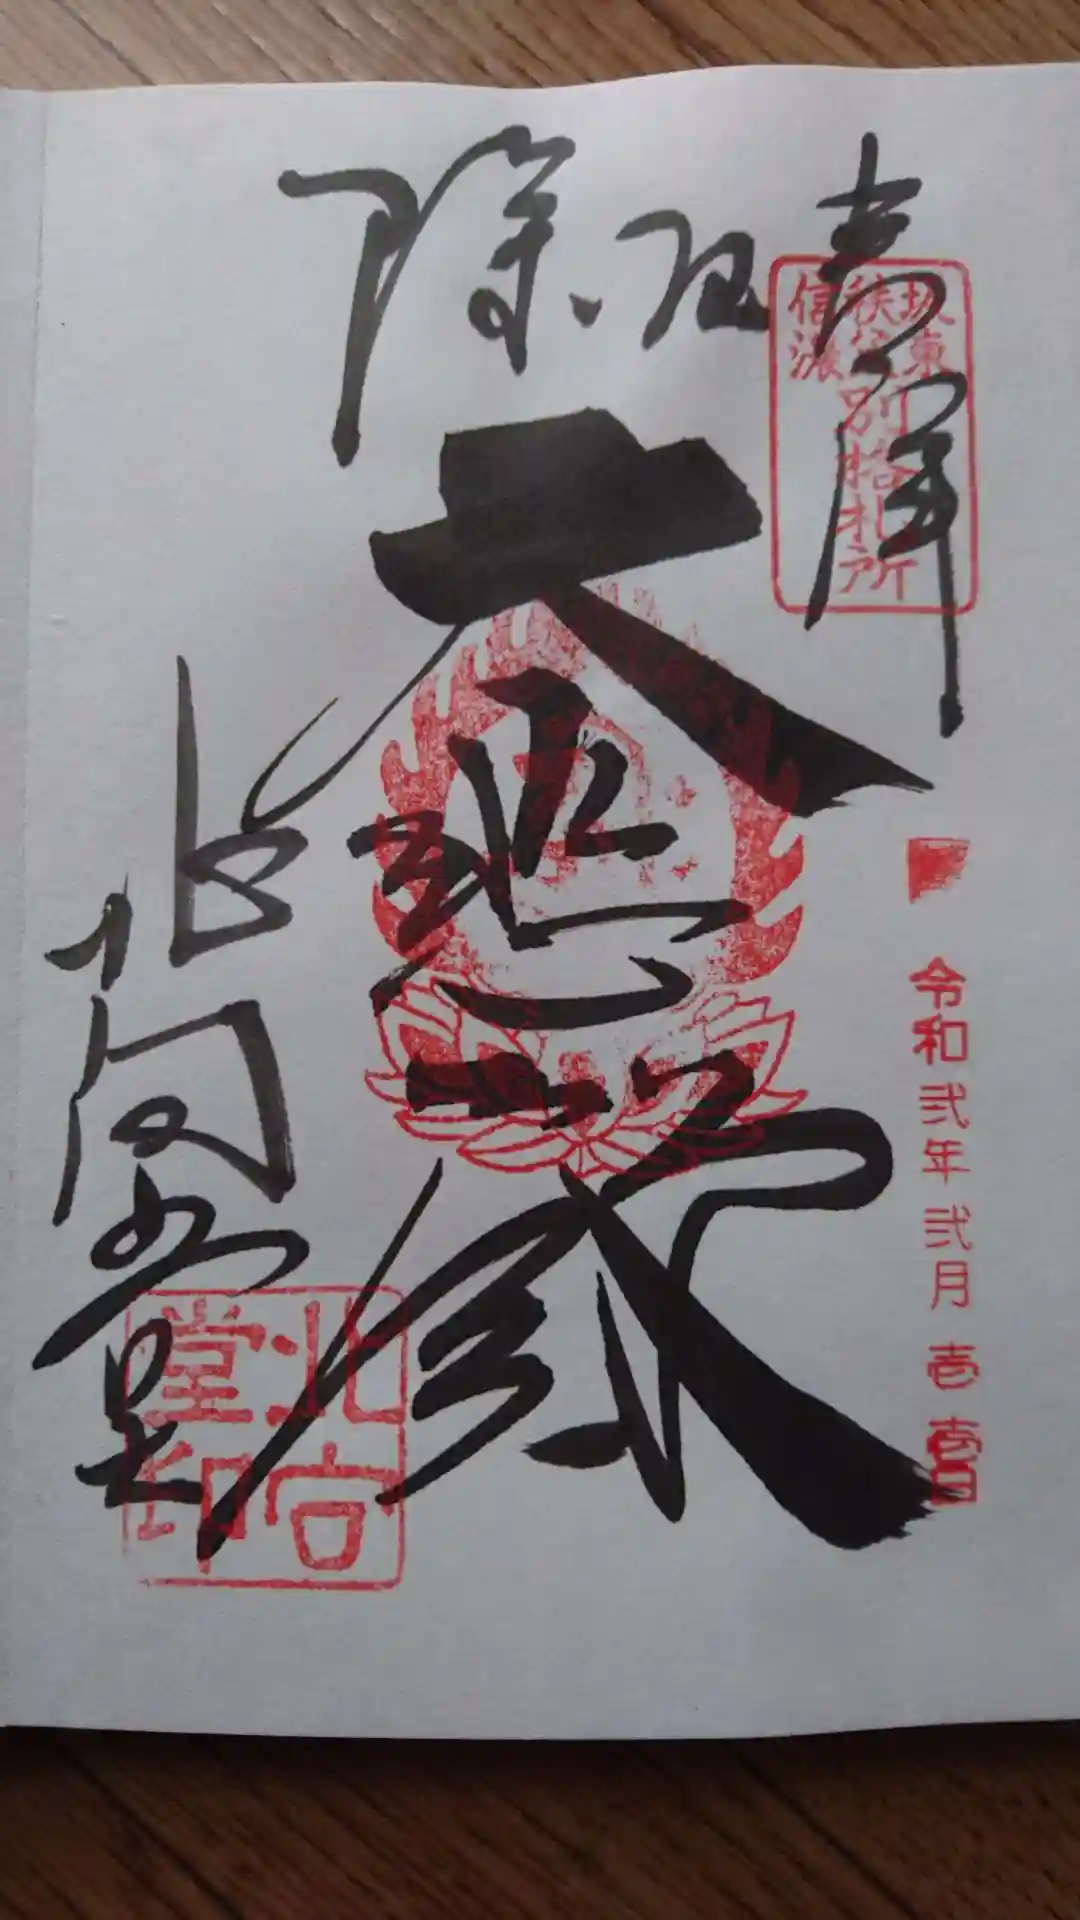 奉拝
坂東
秩父
信濃
別格札所
厄除
大悲殿
令和弐年弐月壱壱日
北向堂
北向
堂印